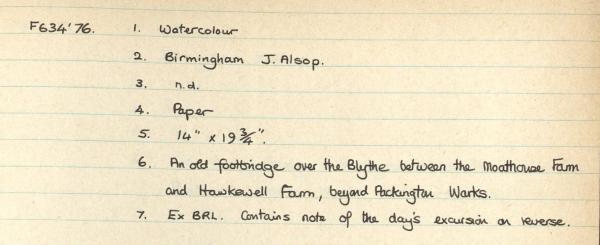 F634'76. 1. Watercolour
2. Birmingham J. Alsop.
3. n.d.
4. Paper
5. 14" x 19 3/4".
6. An old footbridge over the Blythe between the Moathouse Farm
and Hawkewell Farm, beyond Packington Warks.
7. Ex BRL. Contains note of the day's excursion on reverse.